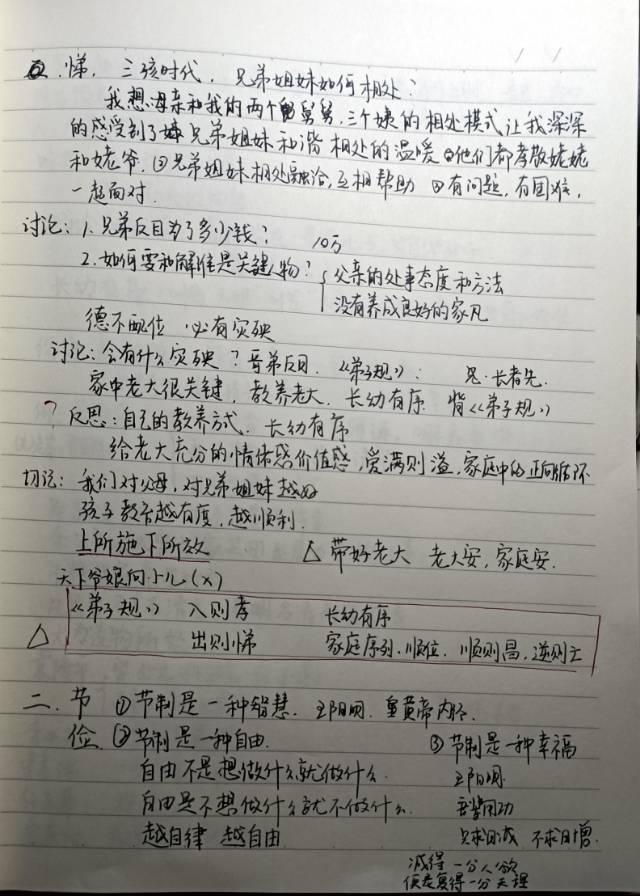 悌. 三孩时代. 兄弟姐妹如何相处?
我想母亲和我的两个舅舅.三个姨的相处模式让我深深
的感受到了 兄弟姐妹和谐相处的温暖 ①他们都孝敬姥姥
和姥爷. ②兄弟姐妹相处融洽,互相帮助 ③有问题,有困难,
一起面对.
讨论: 1.兄弟反目为了多少钱? 10万
2.如何要和解谁是关键人物? { 父亲的处事态度和方法
没有养成良好的家风
德不配位 必有灾殃
讨论:会有什么灾殃? 哥弟反目.《弟子规》: 兄.长者先.
家中老大很关键, 教养老大. 长幼有序 背《弟子规》
? 反思:自己的教养方式. 长幼有序
给老大充分的情体感价值感,爱满则溢.家庭中的正向循环
切记: 我们对父母,对兄弟姐妹越好
孩子教育越有度,越顺利.
上所施下所效 △ 带好老大 老大安,家庭安.
天下爷娘向小儿(×)
《弟子规》 入则孝 长幼有序
△ 出则悌 家庭序列.顺位. 顺则昌,逆则亡
二. 节 ①节制是一种智慧. 王阳明. 皇黄帝内经.
俭 ②节制是一种自由. ③节制是一种幸福
自由不是想做什么就做什么. 王阳明
自由是不想做什么就不做什么. 吾辈用功
越自律 越自由 只求日减 不求日增.
减得一分人欲
便是复得一分天理